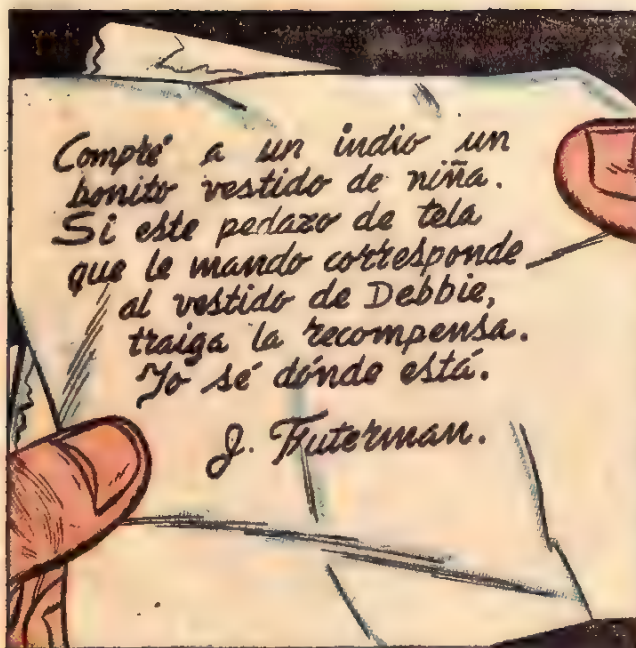 Compré a un indio un
bonito vestido de niña.
Si este pedazo de tela
que le mando corresponde
al vestido de Debbie,
traiga la recompensa.
Yo sé dónde está.
J. Futerman.